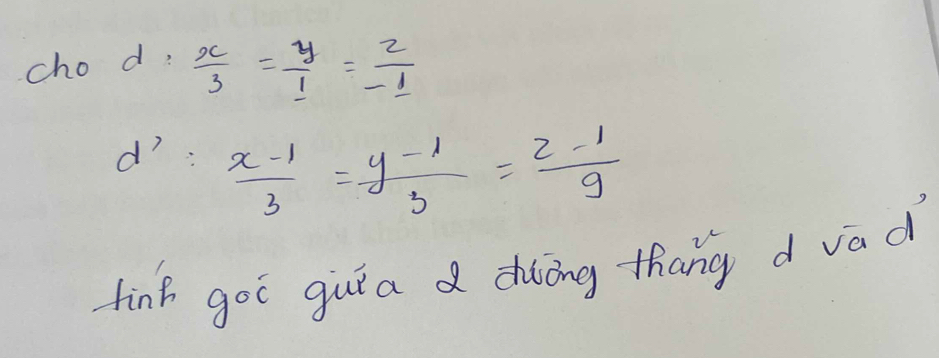 cho d : x/3 = y/1 = z/-1
d' : x-1/3 = y-1/3 = z-1/9
tính góc giữa 2 đường thẳng d và d'